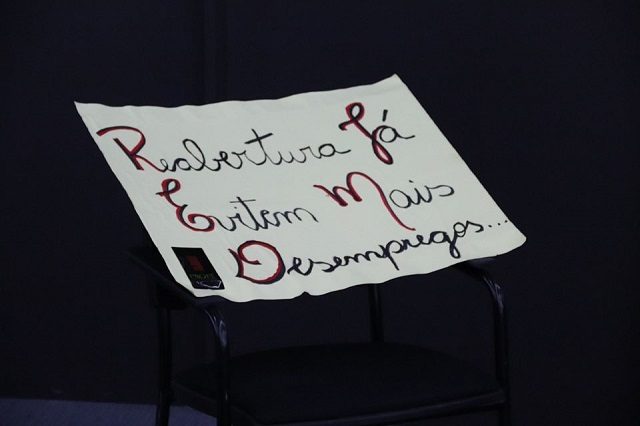 Reabertura Já
Evitem Mais
Desempregos...